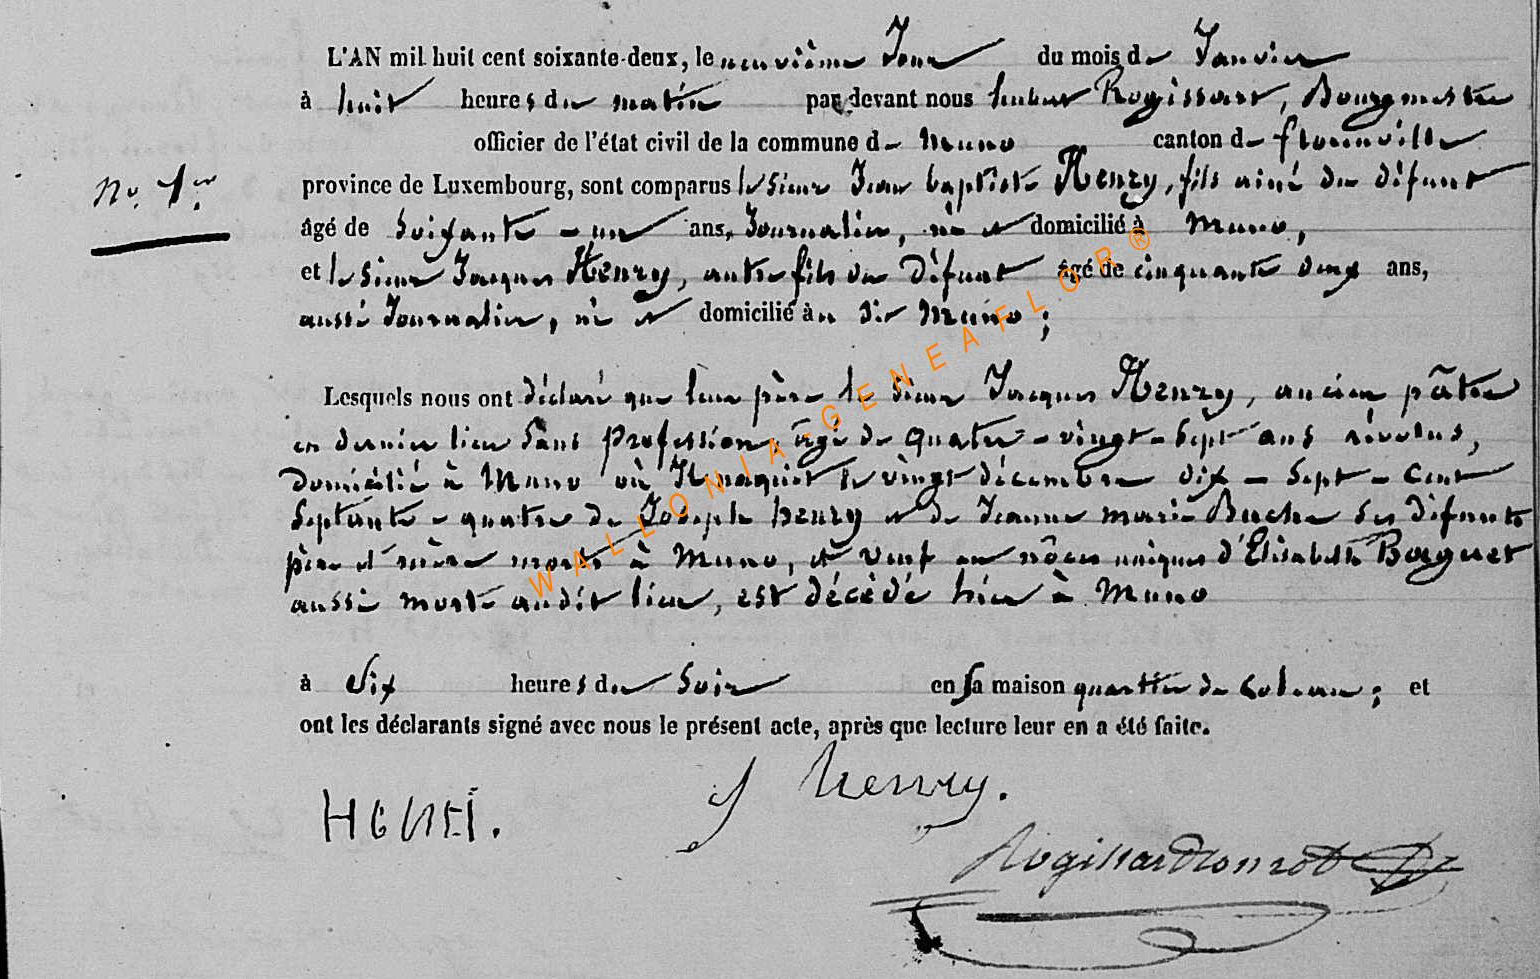 L'AN mil huit cent soixante-deux, le neuvième Jour du mois de Janvier
à huit heures du matin par devant nous hubert Rogissart, Bourgmestre
officier de l'état civil de la commune de Muno canton de florenville
N° 1er province de Luxembourg, sont comparus le sieur Jean baptiste Henry, fils ainé du défunt
âgé de Soixante-un ans, Journalier, né et domicilié à Muno,
et le sieur Jacques Henry, autre fils du Défunt âgé de cinquante deux ans,
aussi Journalier, né et domicilié à dit Muno;
Lesquels nous ont déclaré que leur père le sieur Jacques Henry, ancien pâtre
en dernier lieu Sans Profession, âgé de quatre-vingt-sept ans révolus,
Domicilié à Muno où Il naquit le vingt décembre dix-sept-cent
Septante-quatre de Joseph henry et de Jeanne marie Buche ses défunts
père et mère morts à Muno, et veuf en nôces uniques d'Elisabeth Baguet
aussi morte audit lieu, est décédé hier à Muno
à Six heures du Soir en sa maison quartier de ; et
ont les déclarants signé avec nous le présent acte, après que lecture leur en a été faite.
J henry.
HENRI.
Rogissart
WALLONIA-GENEAFLOR®